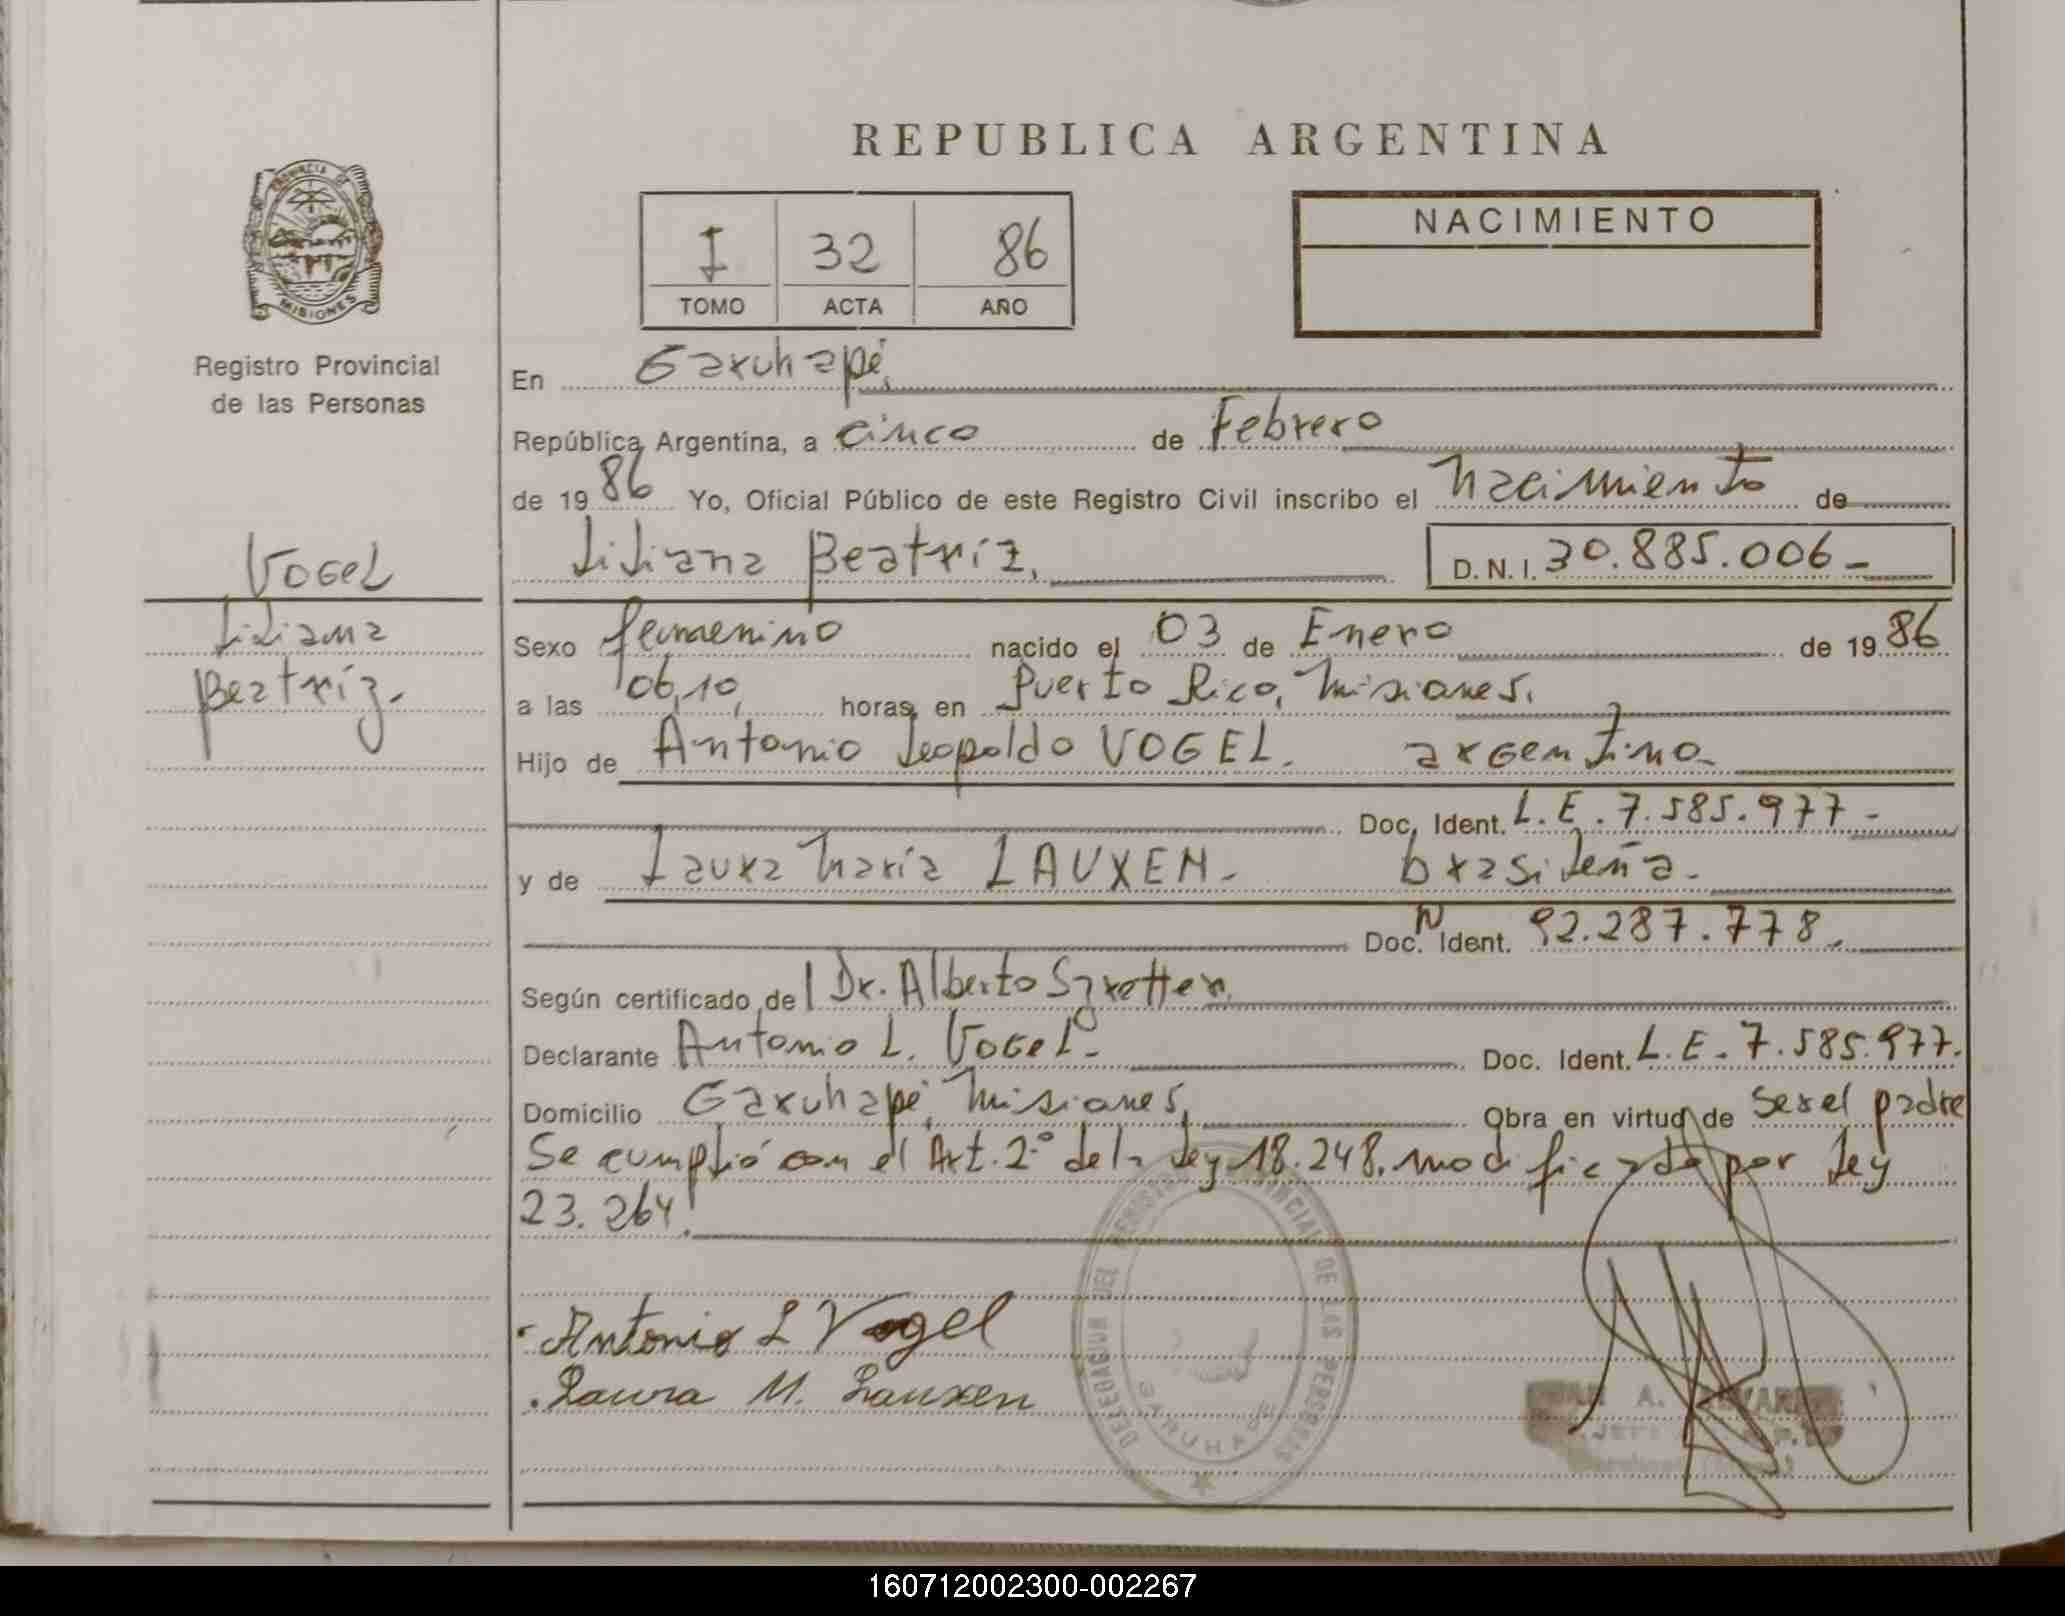 REPUBLICA ARGENTINA
PROVINCIA DE
MISIONES
Registro Provincial
de las Personas
I 32 86
TOMO ACTA AÑO
NACIMIENTO
En Garuhapé,
República Argentina, a cinco de Febrero
de 1986 Yo, Oficial Público de este Registro Civil inscribo el nacimiento de
Liliana Beatríz, D.N.I. 30.885.006-
VOGEL
Liliana
Beatríz.
Sexo femenino nacido el 03 de Enero de 1986
a las 06,10, horas, en Puerto Rico, Misiones.
Hijo de Antonio Leopoldo VOGEL. argentino-
Doc. Ident. L.E. 7.585.977-
y de Laura María LAUXEN- brasileña-
Doc. Ident. Nº 92.287.778.
Según certificado de Dr. Alberto Szretter.
Declarante Antonio L. Vogel- Doc. Ident. L.E. 7.585.977.
Domicilio Garuhapé, Misiones, Obra en virtud de ser el padre
Se cumplió con el Art. 2º de la Ley 18.248, modificada por Ley
23.264.
Antonio L Vogel
Laura M. Lauxen
DELEGACION DEL REGISTRO PROVINCIAL DE LAS PERSONAS
GARUHAPE
160712002300-002267